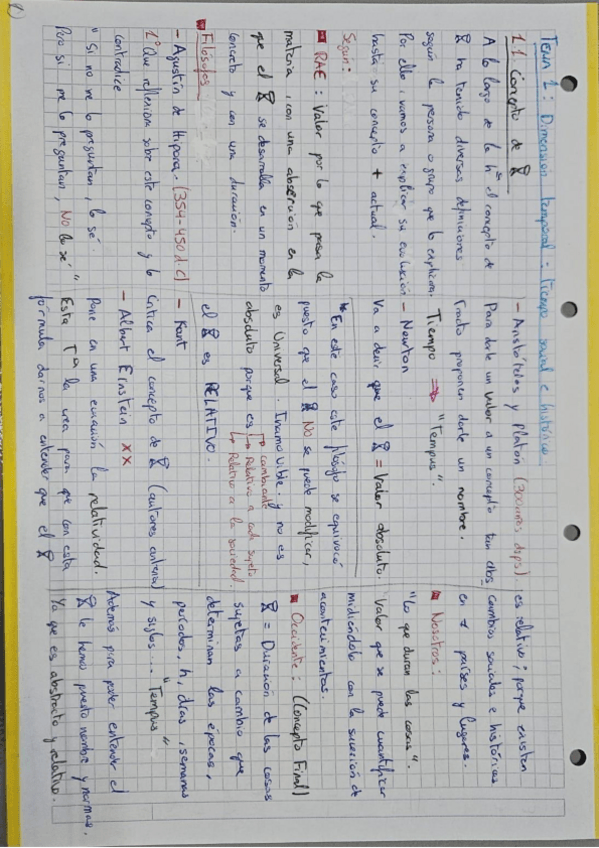 Tema 1: Dimensión temporal: tiempo social e histórico.
1.1 Concepto de ⌛
A lo largo de la hª el concepto de
⌛ ha tenido diversas definiciones
según la persona o grupo que lo explicara.
Por ello, vamos a explicar su evolución
hasta su concepto + actual.
Según:
RAE: Valor por lo que pasa la
materia, con una en la
que el ⌛ se desarrolla en un momento
concreto y con una duración.
Filósofos
- Agustín de Hipona. (354-450 d.C)
1º Que reflexiona sobre este concepto y lo
contradice
"Si no me lo preguntan, lo sé.
Pero si me lo preguntan, NO lo sé"
- Aristóteles y Platón (300 dps)
Para darle un valor a un concepto tan abs
tracto proponen darle un nombre.
Tiempo ⇒ "Tempus".
- Newton
Va a decir que el ⌛ = Valor absoluto.
*En este caso este filósofo se equivocó
puesto que el ⌛ NO se puede modificar,
es Universal. Inamovible y no es
absoluto porque es
→ cambiante
→ Relativo a cada sujeto
→ Relativo a la sociedad.
el ⌛ es RELATIVO.
- Kant
Critica el concepto de ⌛ (autores anteriores)
- Albert Einstein XX
Pone en una ecuación la relatividad.
Esta Tª la crea para que con esta
fórmula darnos a entender que el ⌛
es relativo; porque existen
cambios sociales e históricos
en ≠ países y lugares.
Nosotros:
"Lo que duran las cosas".
Valor que se puede cuantificar
midiéndolo con la sucesión de
acontecimientos.
Occidente: (Concepto Final)
⌛ = Duración de las cosas
sujetas a cambio que
determinan las épocas,
períodos, h, días, semanas
y siglos... "Tempus"
Además para poder entender el
⌛ le hemos puesto nombre y normas.
Ya que es abstracto y relativo.